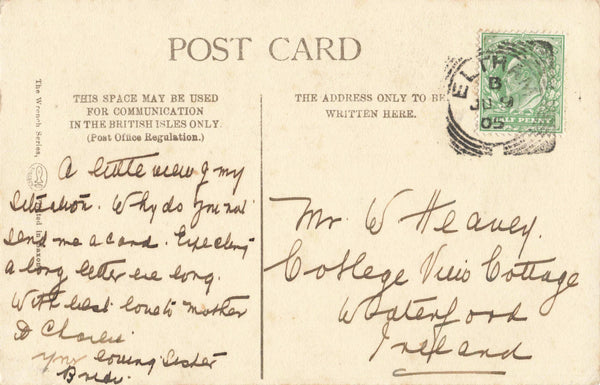 POST CARD
THIS SPACE MAY BE USED
FOR COMMUNICATION
IN THE BRITISH ISLES ONLY.
(Post Office Regulation.)
THE ADDRESS ONLY TO BE
WRITTEN HERE.
The Wrench Series,
ELTHAM
B
JU 9
05
HALF PENNY
A little view of my
situation. Why do you not
send me a card. Expecting
a long letter ere long.
With best love to mother
& Charlie
Your loving sister
Mr W Heavey.
College View Cottage
Waterford
Ireland